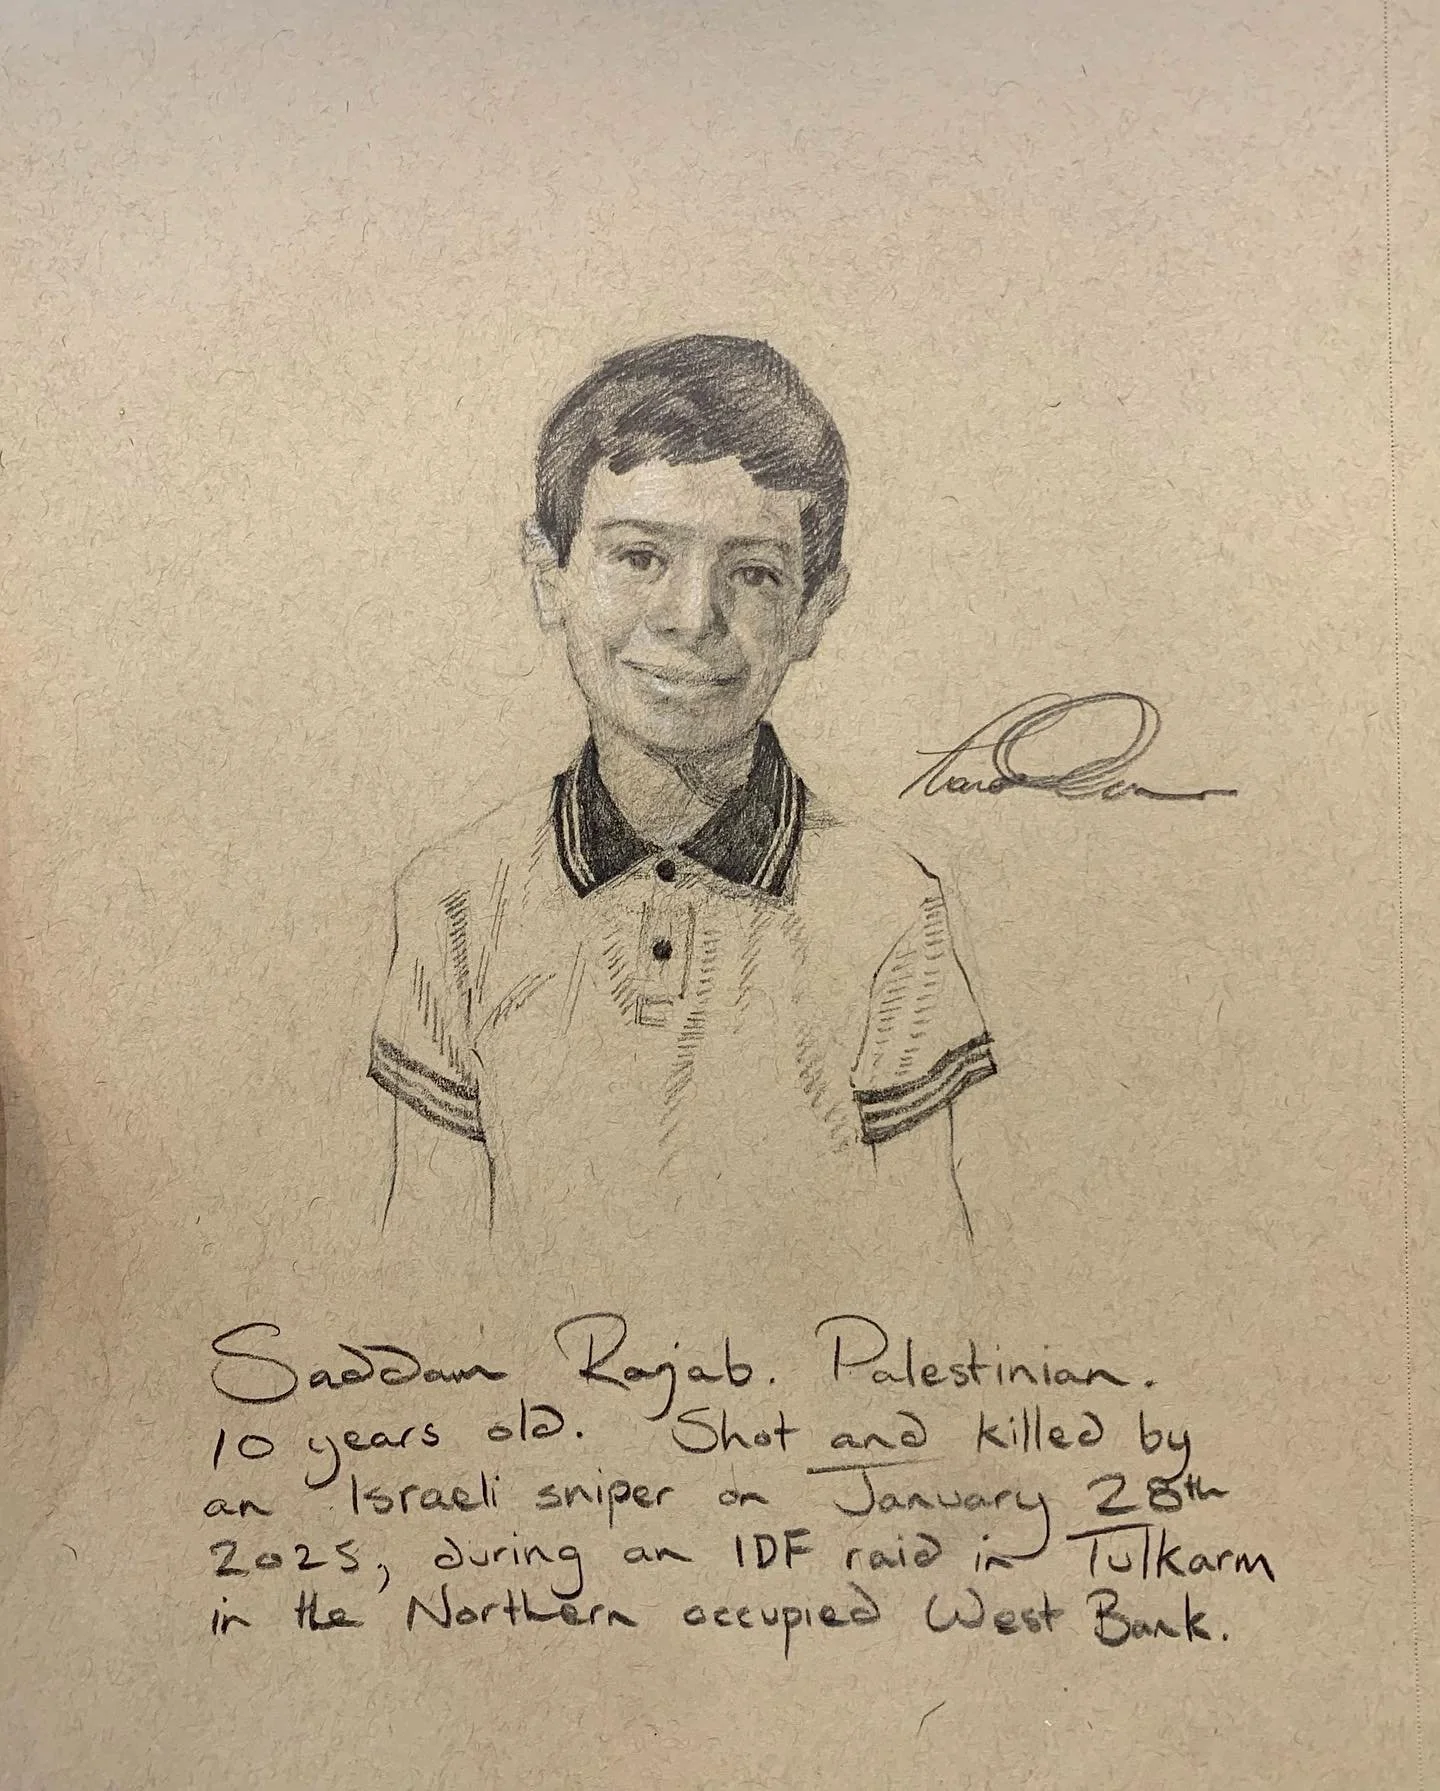 Saddam Rajab. Palestinian.
10 years old. Shot and killed by
an Israeli sniper on January 28th
2025, during an IDF raid in Tulkarm
in the Northern occupied West Bank.